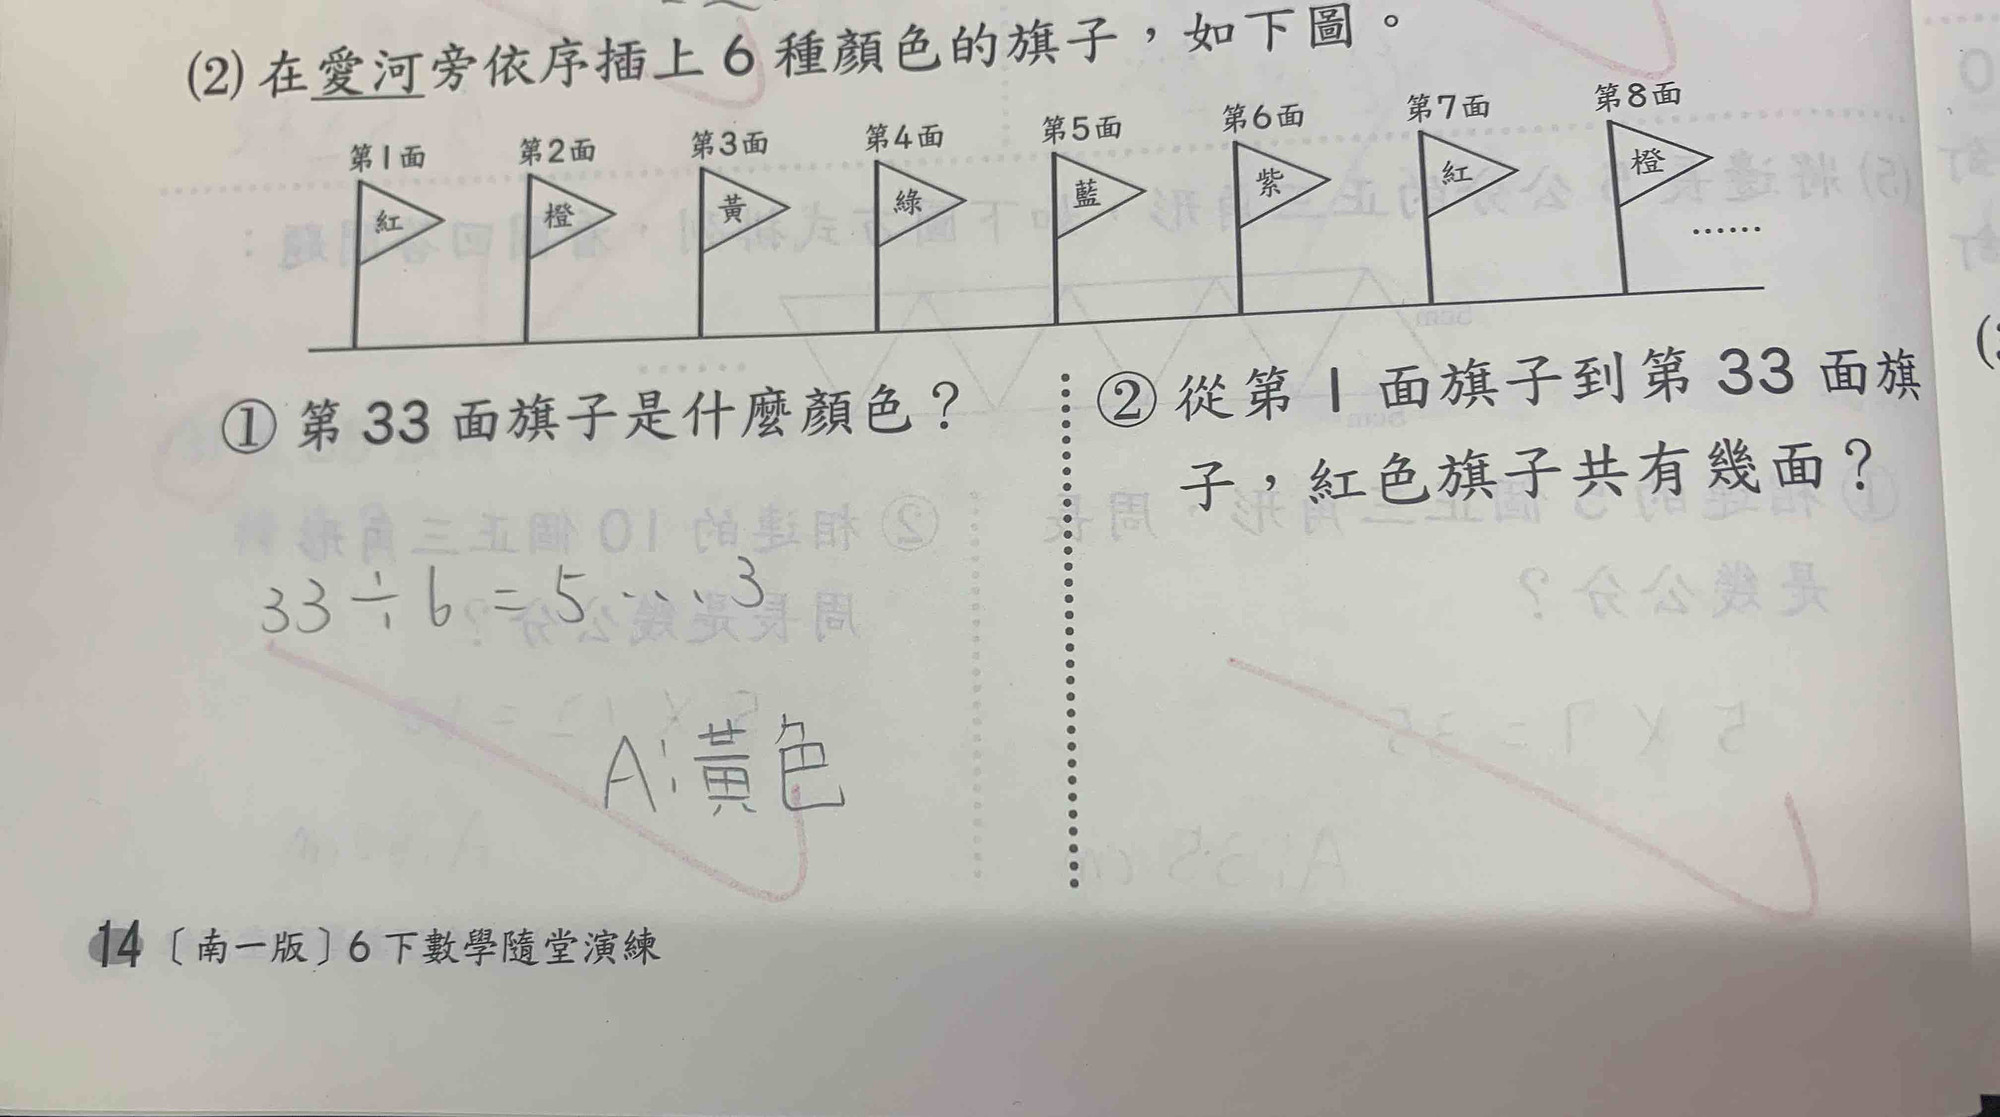 (2) 在愛河旁依序插上6種顏色的旗子，如下圖。
第1面 第2面 第3面 第4面 第5面 第6面 第7面 第8面
紅 橙 黃 綠 藍 紫 紅 橙 ……
① 第33面旗子是什麼顏色？
33÷6=5…3
A:黃色
② 從第1面旗子到第33面旗
子，紅色旗子共有幾面？
14〔南一版〕6下數學隨堂演練